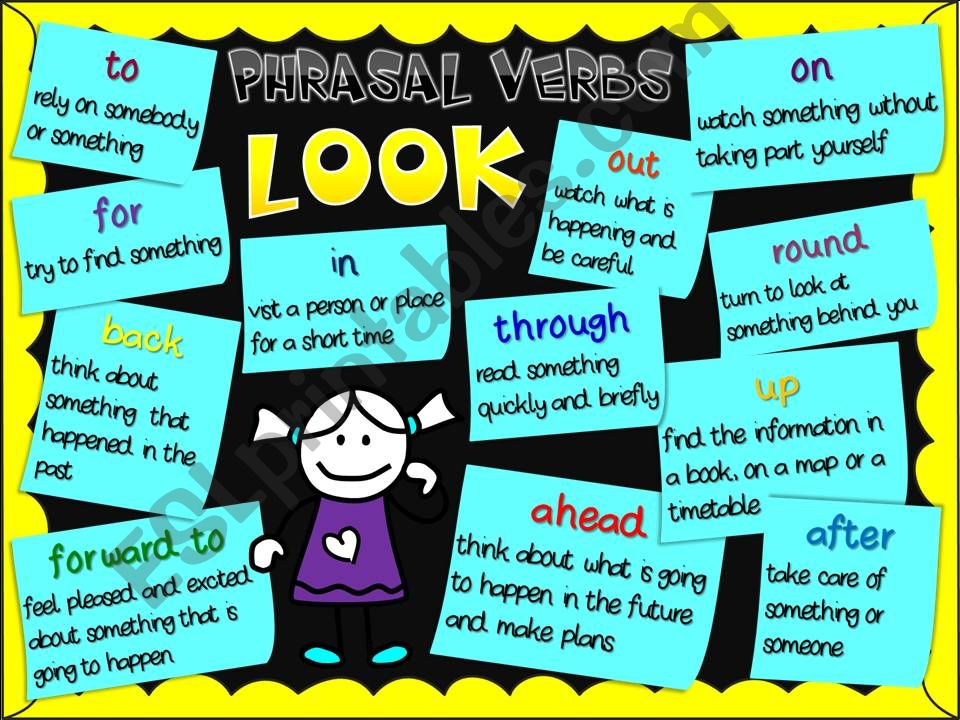 PHRASAL VERBS
LOOK
to
rely on somebody
or something
for
try to find something
back
think about
something that
happened in the
past
forward to
feel pleased and excited
about something that is
going to happen
in
vist a person or place
for a short time
out
watch what is
happening and
be careful
through
read something
quickly and briefly
ahead
think about what is going
to happen in the future
and make plans
on
watch something without
taking part yourself
round
turn to look at
something behind you
up
find the information in
a book, on a map or a
timetable
after
take care of
something or
someone
ESLprintables.com